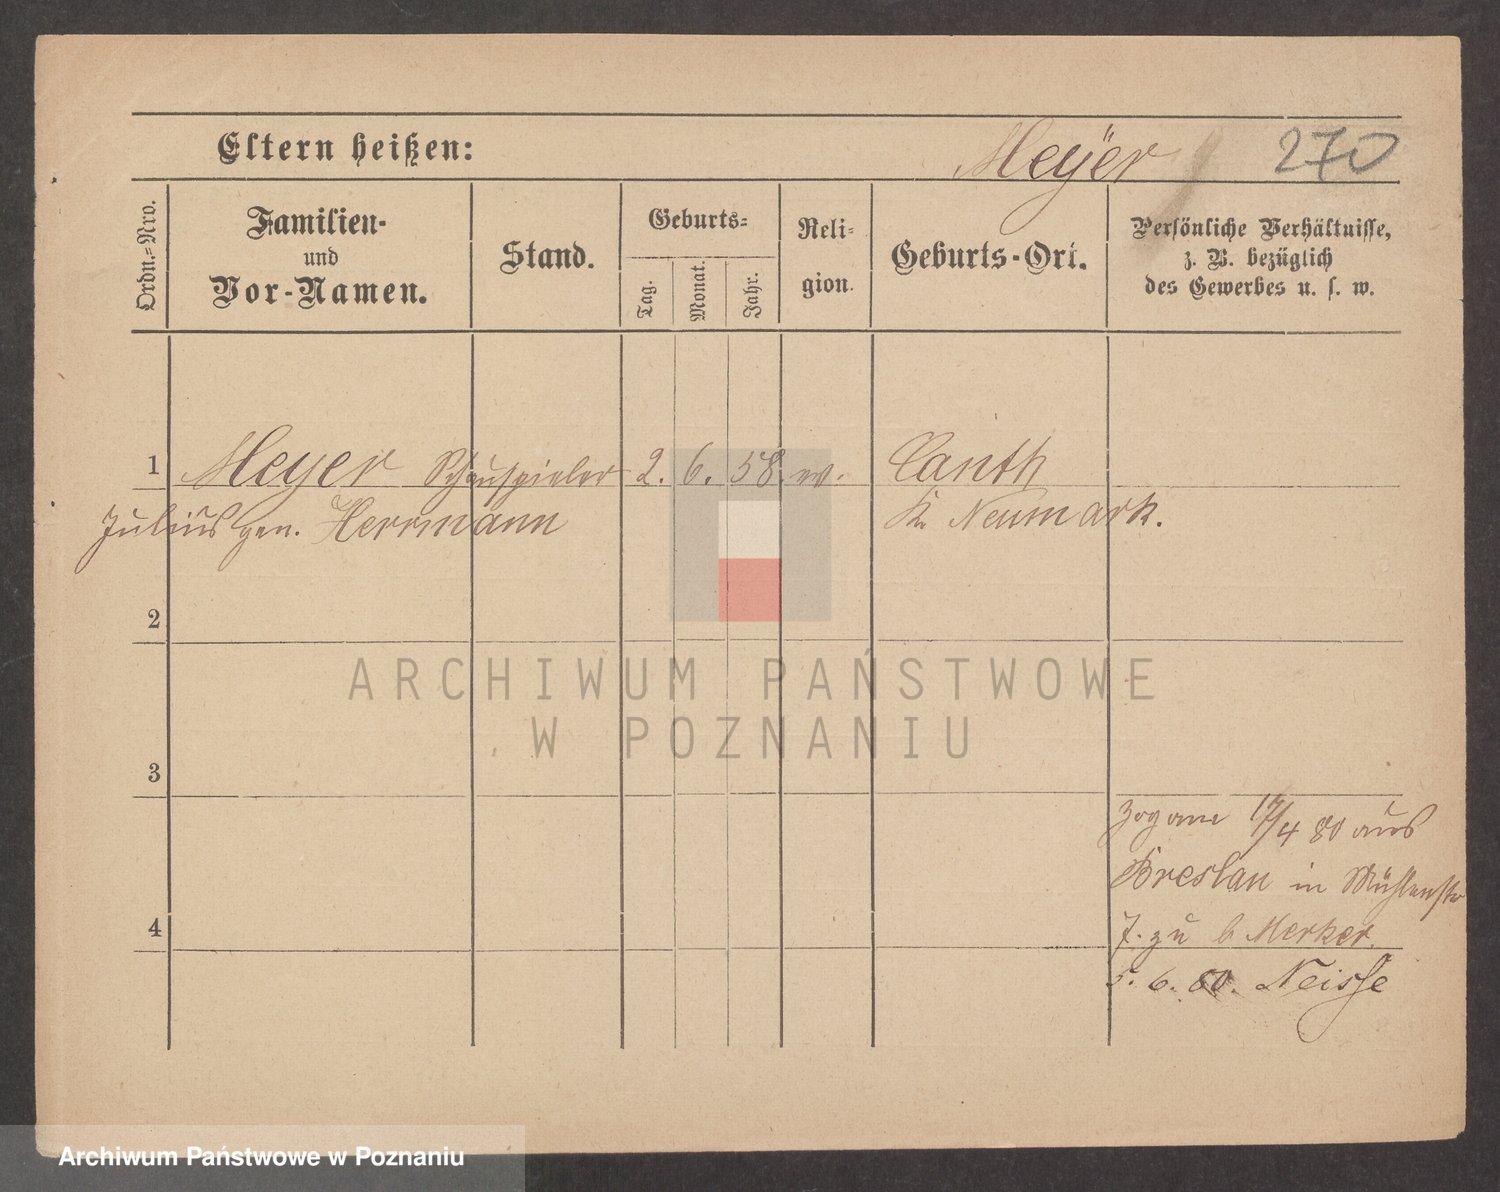 Eltern heißen: Meÿer 270
Ordn.-Nro.
Familien-
und
Vor-Namen.
Stand.
Geburts-
Tag.
Monat.
Jahr.
Reli-
gion.
Geburts-Ort.
Persönliche Verhältnisse,
z. B. bezüglich
des Gewerbes u. s. w.
1 Meyer Schauspieler 2. 6. 58. Canth
Julius gen. Herrmann Kr. Neumark.
2
3
4
zog am 17/4 80 aus
Breslau in Mühlenstr
7. zu b Merker.
5. 6. 80. Neisse
ARCHIWUM PAŃSTWOWE
W POZNANIU
Archiwum Państwowe w Poznaniu